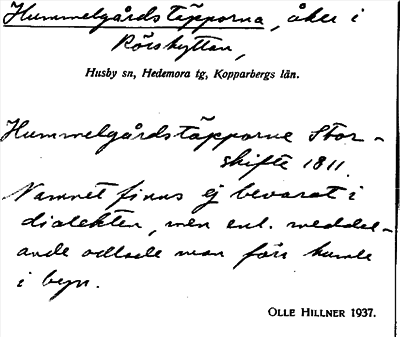 Hummelgårdstäpporna, åker i
Rörshyttan,
Husby sn, Hedemora tg, Kopparbergs län.
Hummelgårdstäpporne Stor-
skifte 1811.
Namnet finns ej bevarat i
dialekten, men enl. meddel-
ande odlade man förr humle
i byn.
OLLE HILLNER 1937.